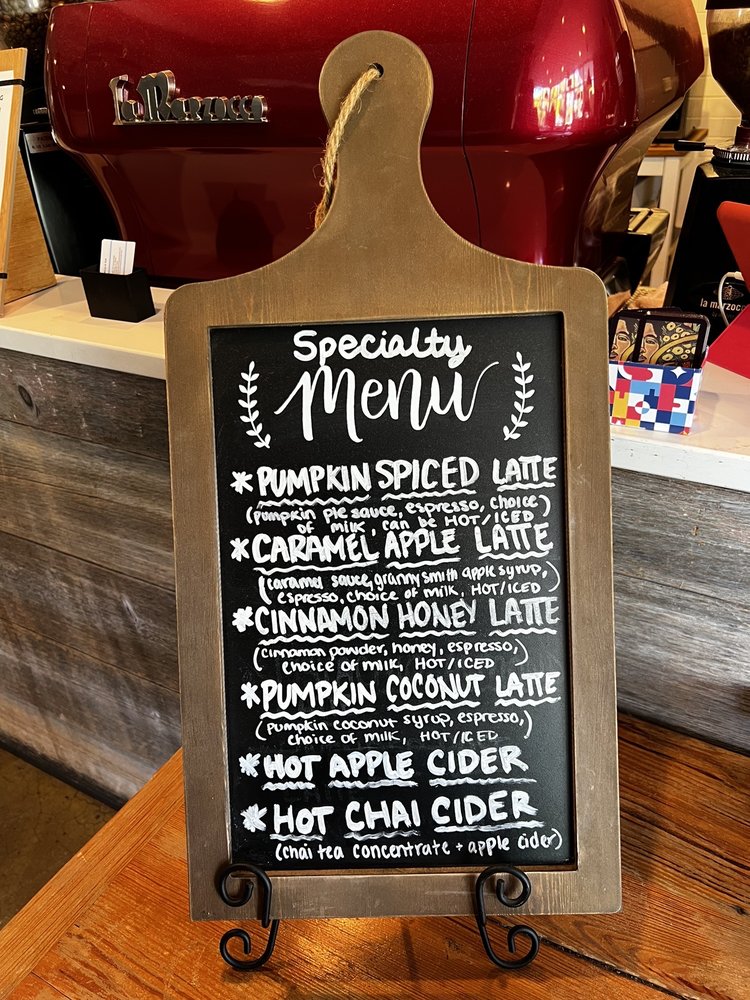 La Marzocco
la marzoc
Specialty
Menu
*PUMPKIN SPICED LATTE
(pumpkin pie sauce, espresso, choice)
of milk, can be HOT/ICED
*CARAMEL APPLE LATTE
(caramel sauce, granny smith apple syrup,)
espresso, choice of milk, HOT/ICED
*CINNAMON HONEY LATTE
(cinnamon powder, honey, espresso,)
choice of milk, HOT/ICED
*PUMPKIN COCONUT LATTE
(pumpkin coconut syrup, espresso,)
choice of milk, HOT/ICED
*HOT APPLE CIDER
*HOT CHAI CIDER
(chai tea concentrate + apple cider)